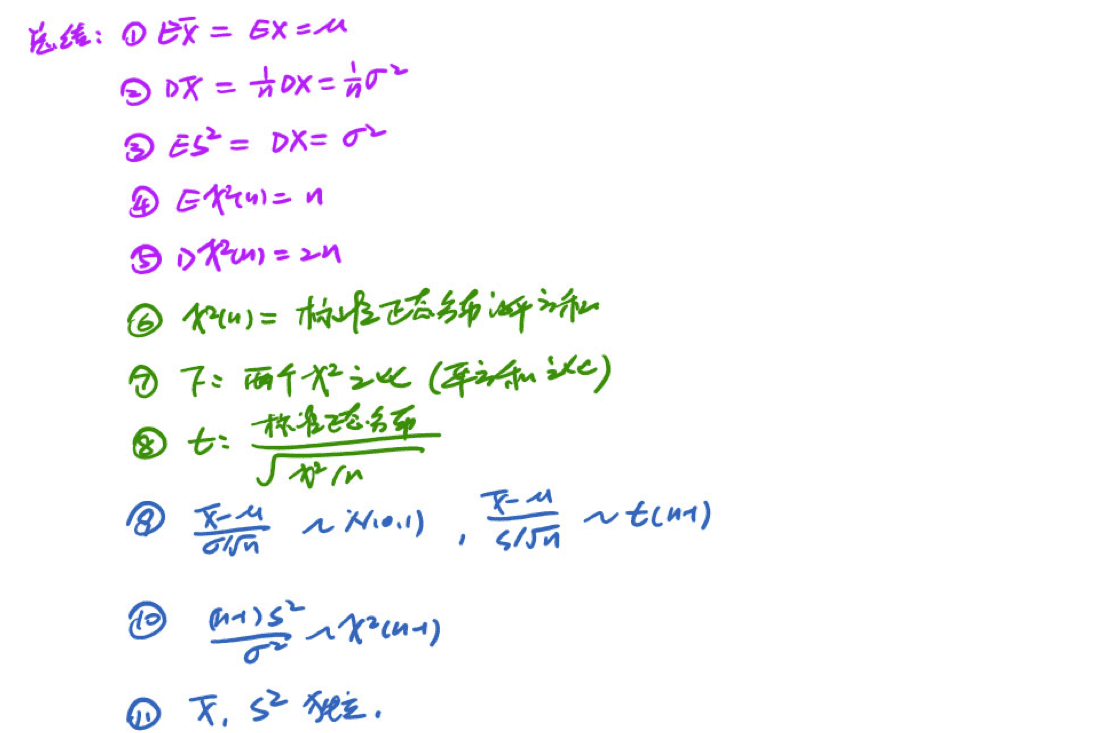 总结: ① EX̄ = EX = μ
② DX̄ = 1/n DX = 1/n σ²
③ ES² = DX = σ²
④ Eχ²(n) = n
⑤ Dχ²(n) = 2n
⑥ χ²(n) = 标准正态分布的平方和
⑦ F: 两个χ²之比 (平方和之比)
⑧ t: 标准正态分布/√(χ²/n)
⑨ (X̄-μ)/(σ/√n) ~ N(0,1), (X̄-μ)/(S/√n) ~ t(n-1)
⑩ (n-1)S²/σ² ~ χ²(n-1)
⑪ X̄, S² 独立.